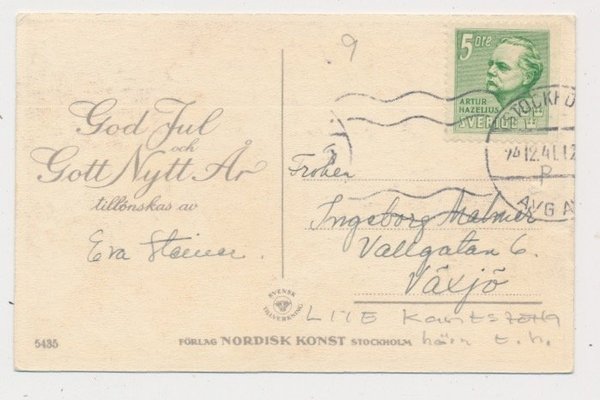 9
5 öre
ARTUR
HAZELIUS
SVERIGE
STOCKHO
24 12.41.12
P
AVG A
God Jul
och
Gott Nytt År
tillönskas av
Eva Steiner.
Fröken
Ingeborg Malmer
Vallgatan 6.
Växjö
SVENSK
TILLVERKNING
LITE
hörn t.h.
5435
FÖRLAG NORDISK KONST STOCKHOLM